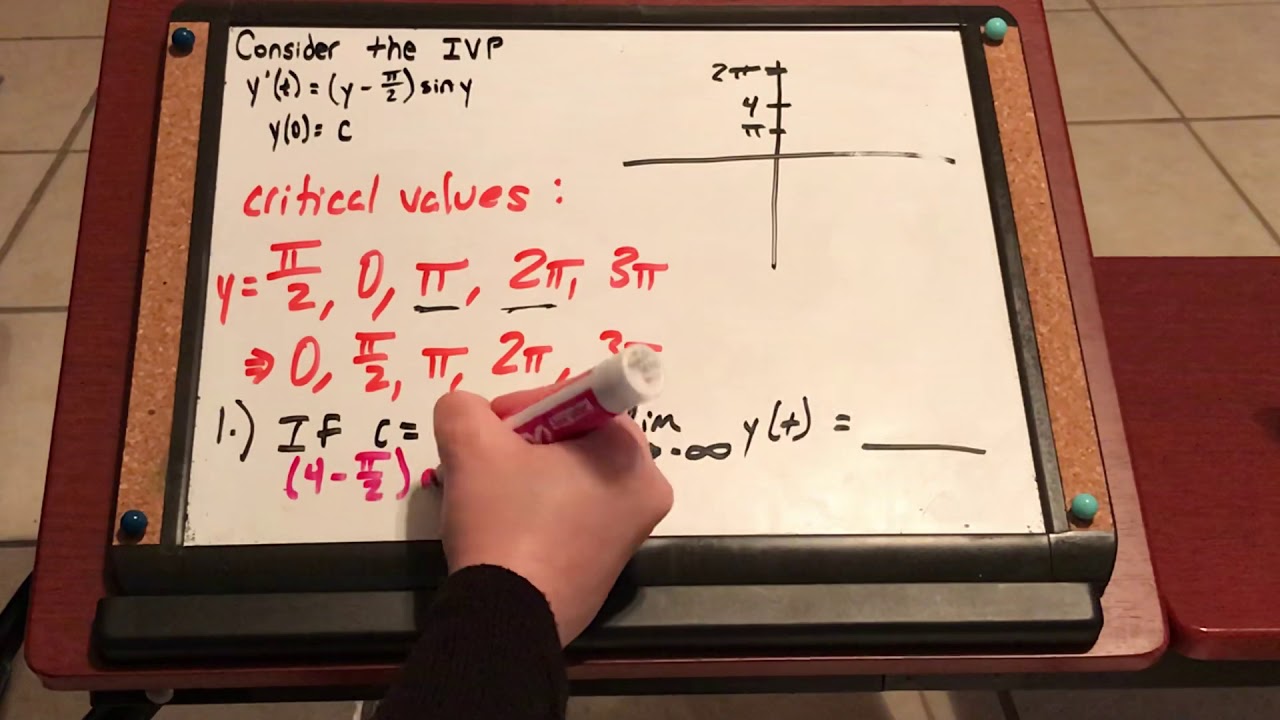 Consider the IVP
y'(t) = (y - π/2) sin y
y(0) = c
2π
4
π
critical values :
y = π/2, 0, π, 2π, 3π
⇒ 0, π/2, π, 2π, 3π
1.) If c = lim y(t) = ____
-∞
(4 - π/2)